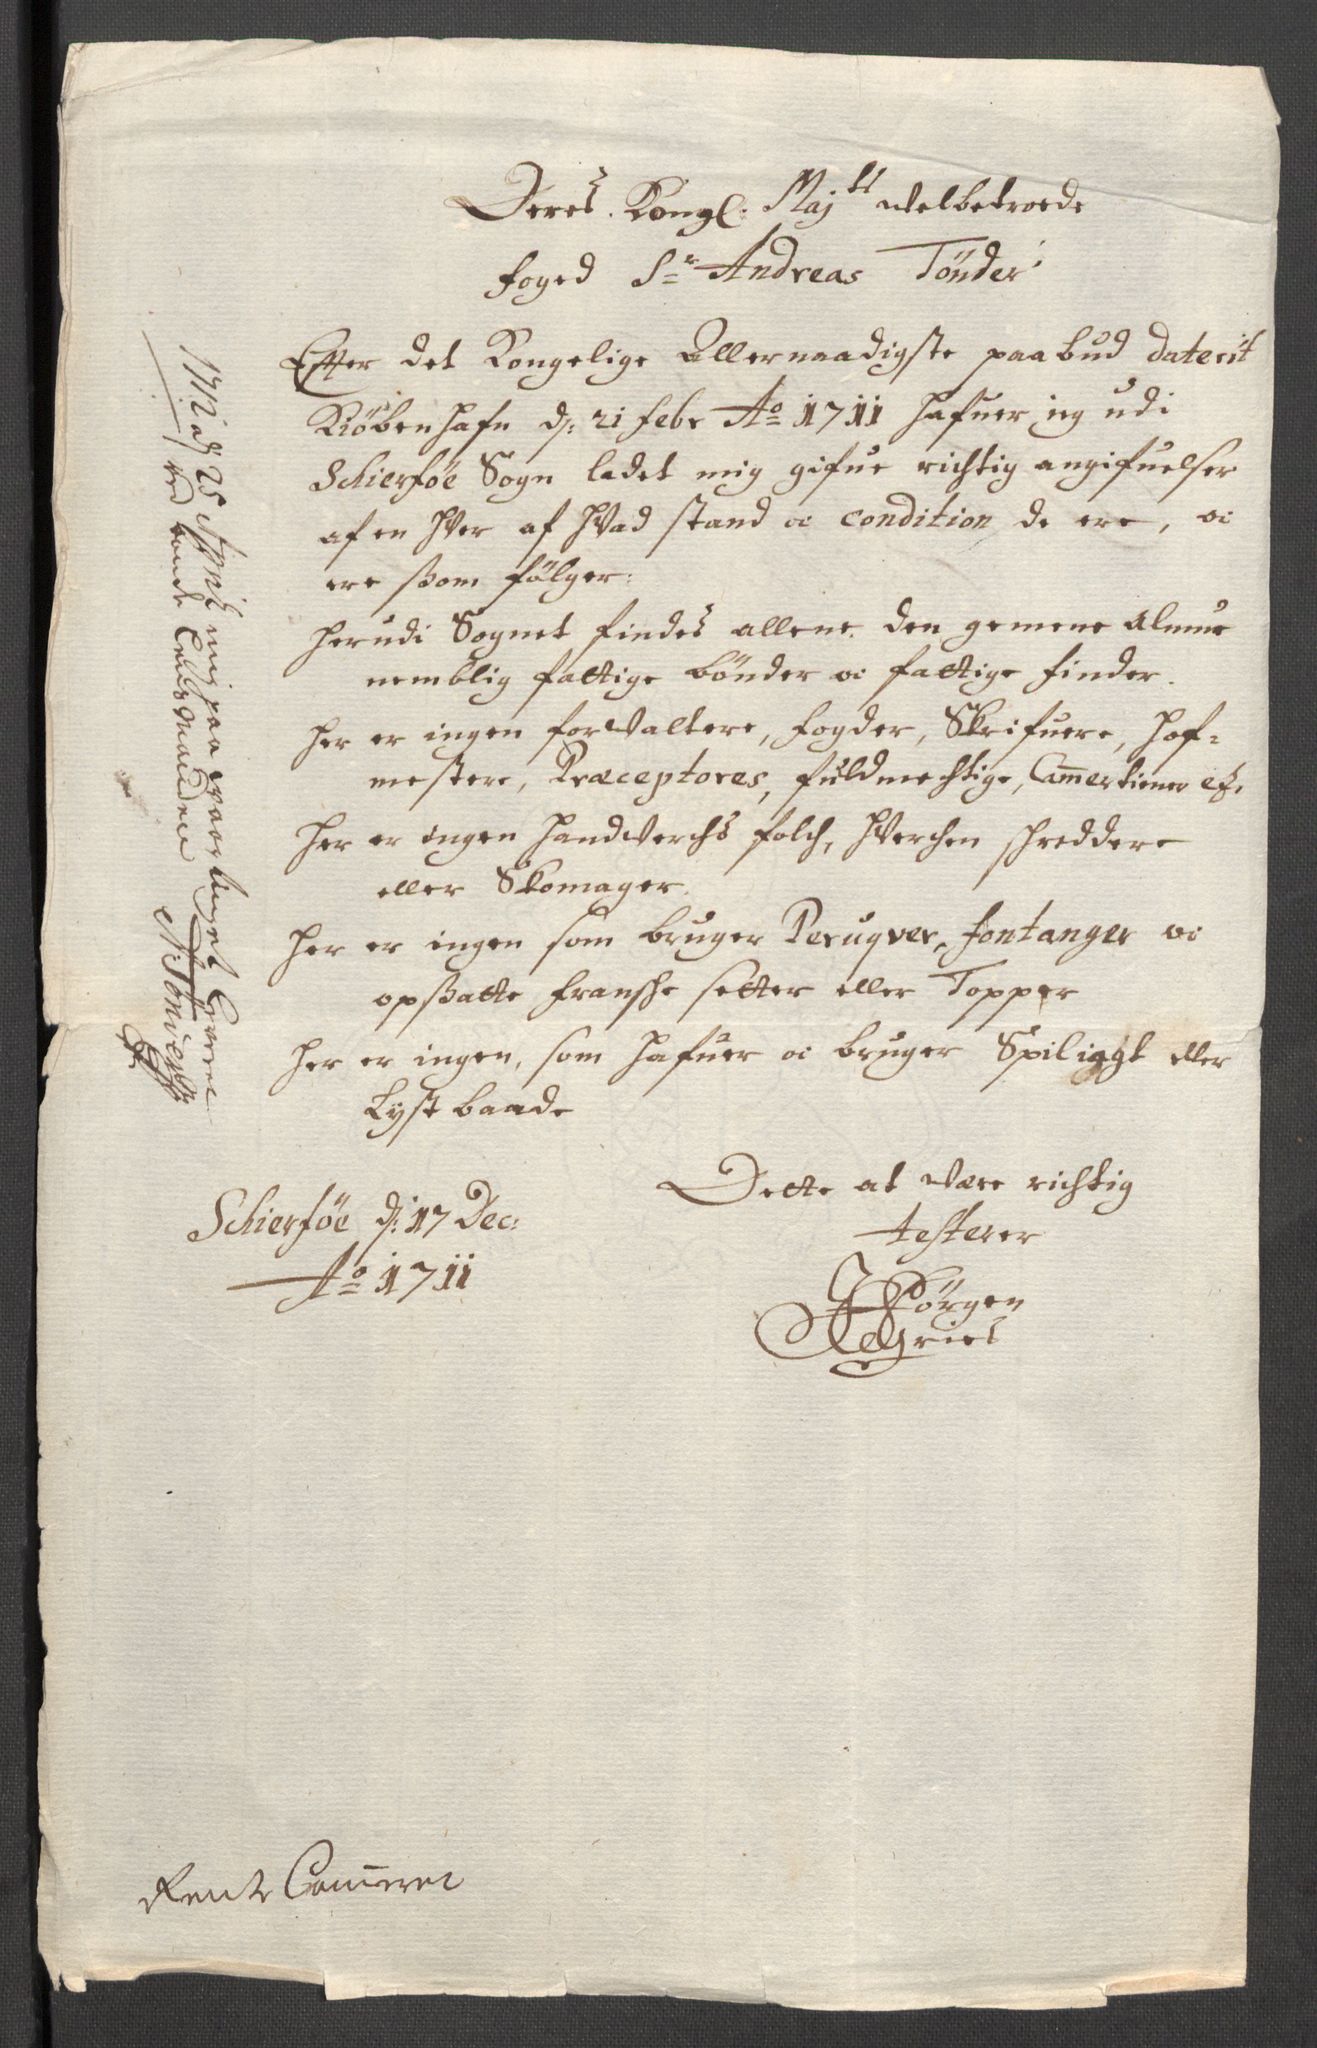 Deres Kongl: Maj^tt welbetroede
foged Sr Andreas Tönder
Effter det Kongelige Allernaadigste paabud daterit
Kiöbenhafn d: 21 febr Ao 1711 hafuer ieg udi
Schierföe Sogn ladet mig gifue richtig angifuelser
af en hver af hvad stand oc condition de ere, oc
ere ssom fölger:
herudi Sognet findes allene den gemene almue
nemblig fattige bönder oc fattige finder.
her er ingen forvaltere, fogder, Skrifuere, hof-
mestere, Præceptores, fuldmechtige, Camertiener etc.
her er ingen handverchs folch, hverchen schreddere
eller Skomager.
her er ingen som bruger Peruqver, fontanger oc
opssatte fransche setter eller Topper
her er ingen, som hafuer oc bruger Spiliagt eller
Lyst baade
Dette at være richtig
testerer
Jörgen
Gries
Schierföe d: 17 Dec:
Ao 1711
1712 d 25 mig paa
ved bonde Lensmanden
Rente Cammeret